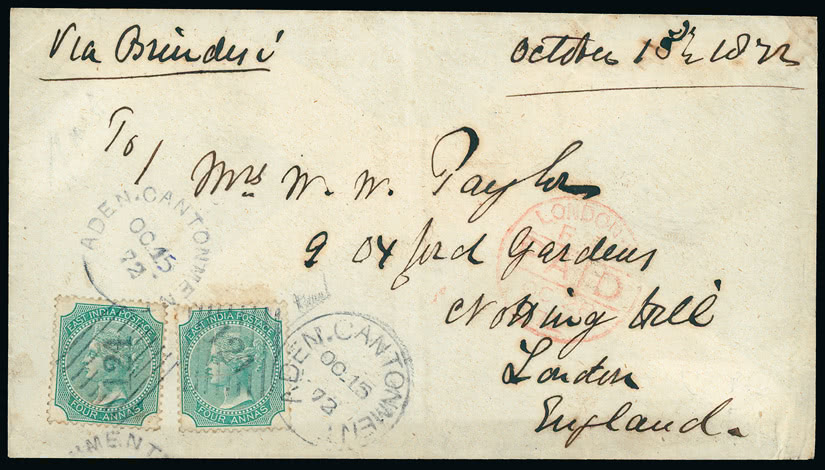 Via Brindisi
October 15th 1872
To/
Mrs W. W. Taylor
9 Oxford Gardens
Notting hill
London
England.
ADEN.CANTONMEN
OC.15
72
LONDON
PAID
EAST INDIA POSTAGE
124
FOUR ANNAS
EAST INDIA POSTAGE
124
FOUR ANNAS
ADEN.CANTONMENT
OC.15
72
NMENT